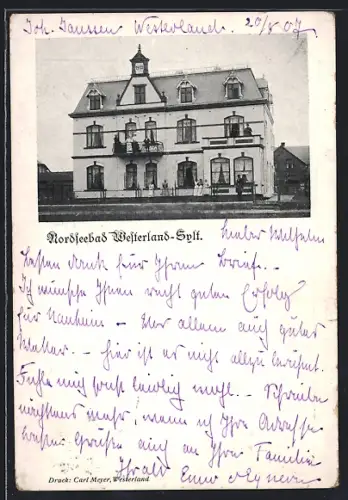 Joh. Janssen Westerland. 20/8 07
Nordseebad Westerland-Sylt.
Lieber Wilhelm
Besten Dank für Ihren Brief. -
Ich wünsche Ihnen recht guten Erfolg
für Nauheim - Vor allem auch gutes
Wetter. - Hier ist es nicht allzu
Fühle mich sonst wohl. - Schreiben
mehr, wenn ich Ihre Adresse
Grüßen auch an Ihre Familie
Ihr alter
Druck: Carl Meyer, Westerland